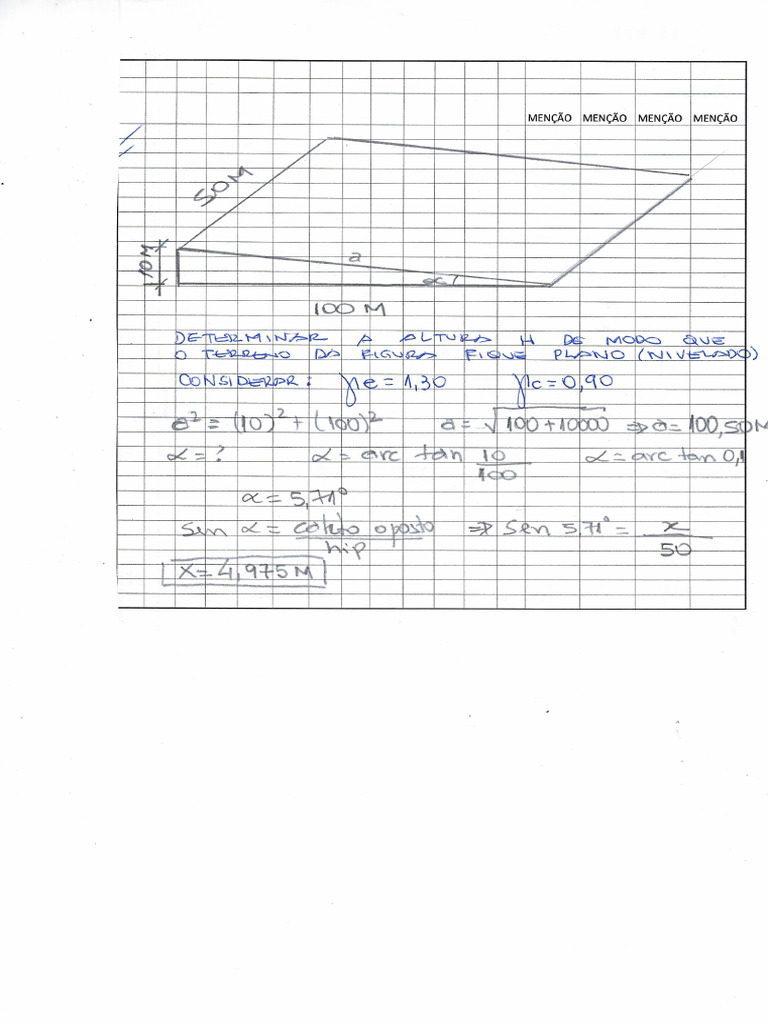 MENÇÃO MENÇÃO MENÇÃO MENÇÃO
50M
10M
a
α
100 M
DETERMINAR A ALTURA H DE MODO QUE
O TERRENO DA FIGURA FIQUE PLANO (NIVELADO)
CONSIDERAR: γe = 1,30 γc = 0,90
a² = (10)² + (100)² a = √100 + 10000 ⇒ a = 100,50M
α = ? α = arc tan 10/100 α = arc tan 0,1
α = 5,71°
Sen α = cateto oposto/hip ⇒ Sen 5,71° = x/50
X = 4,975 M